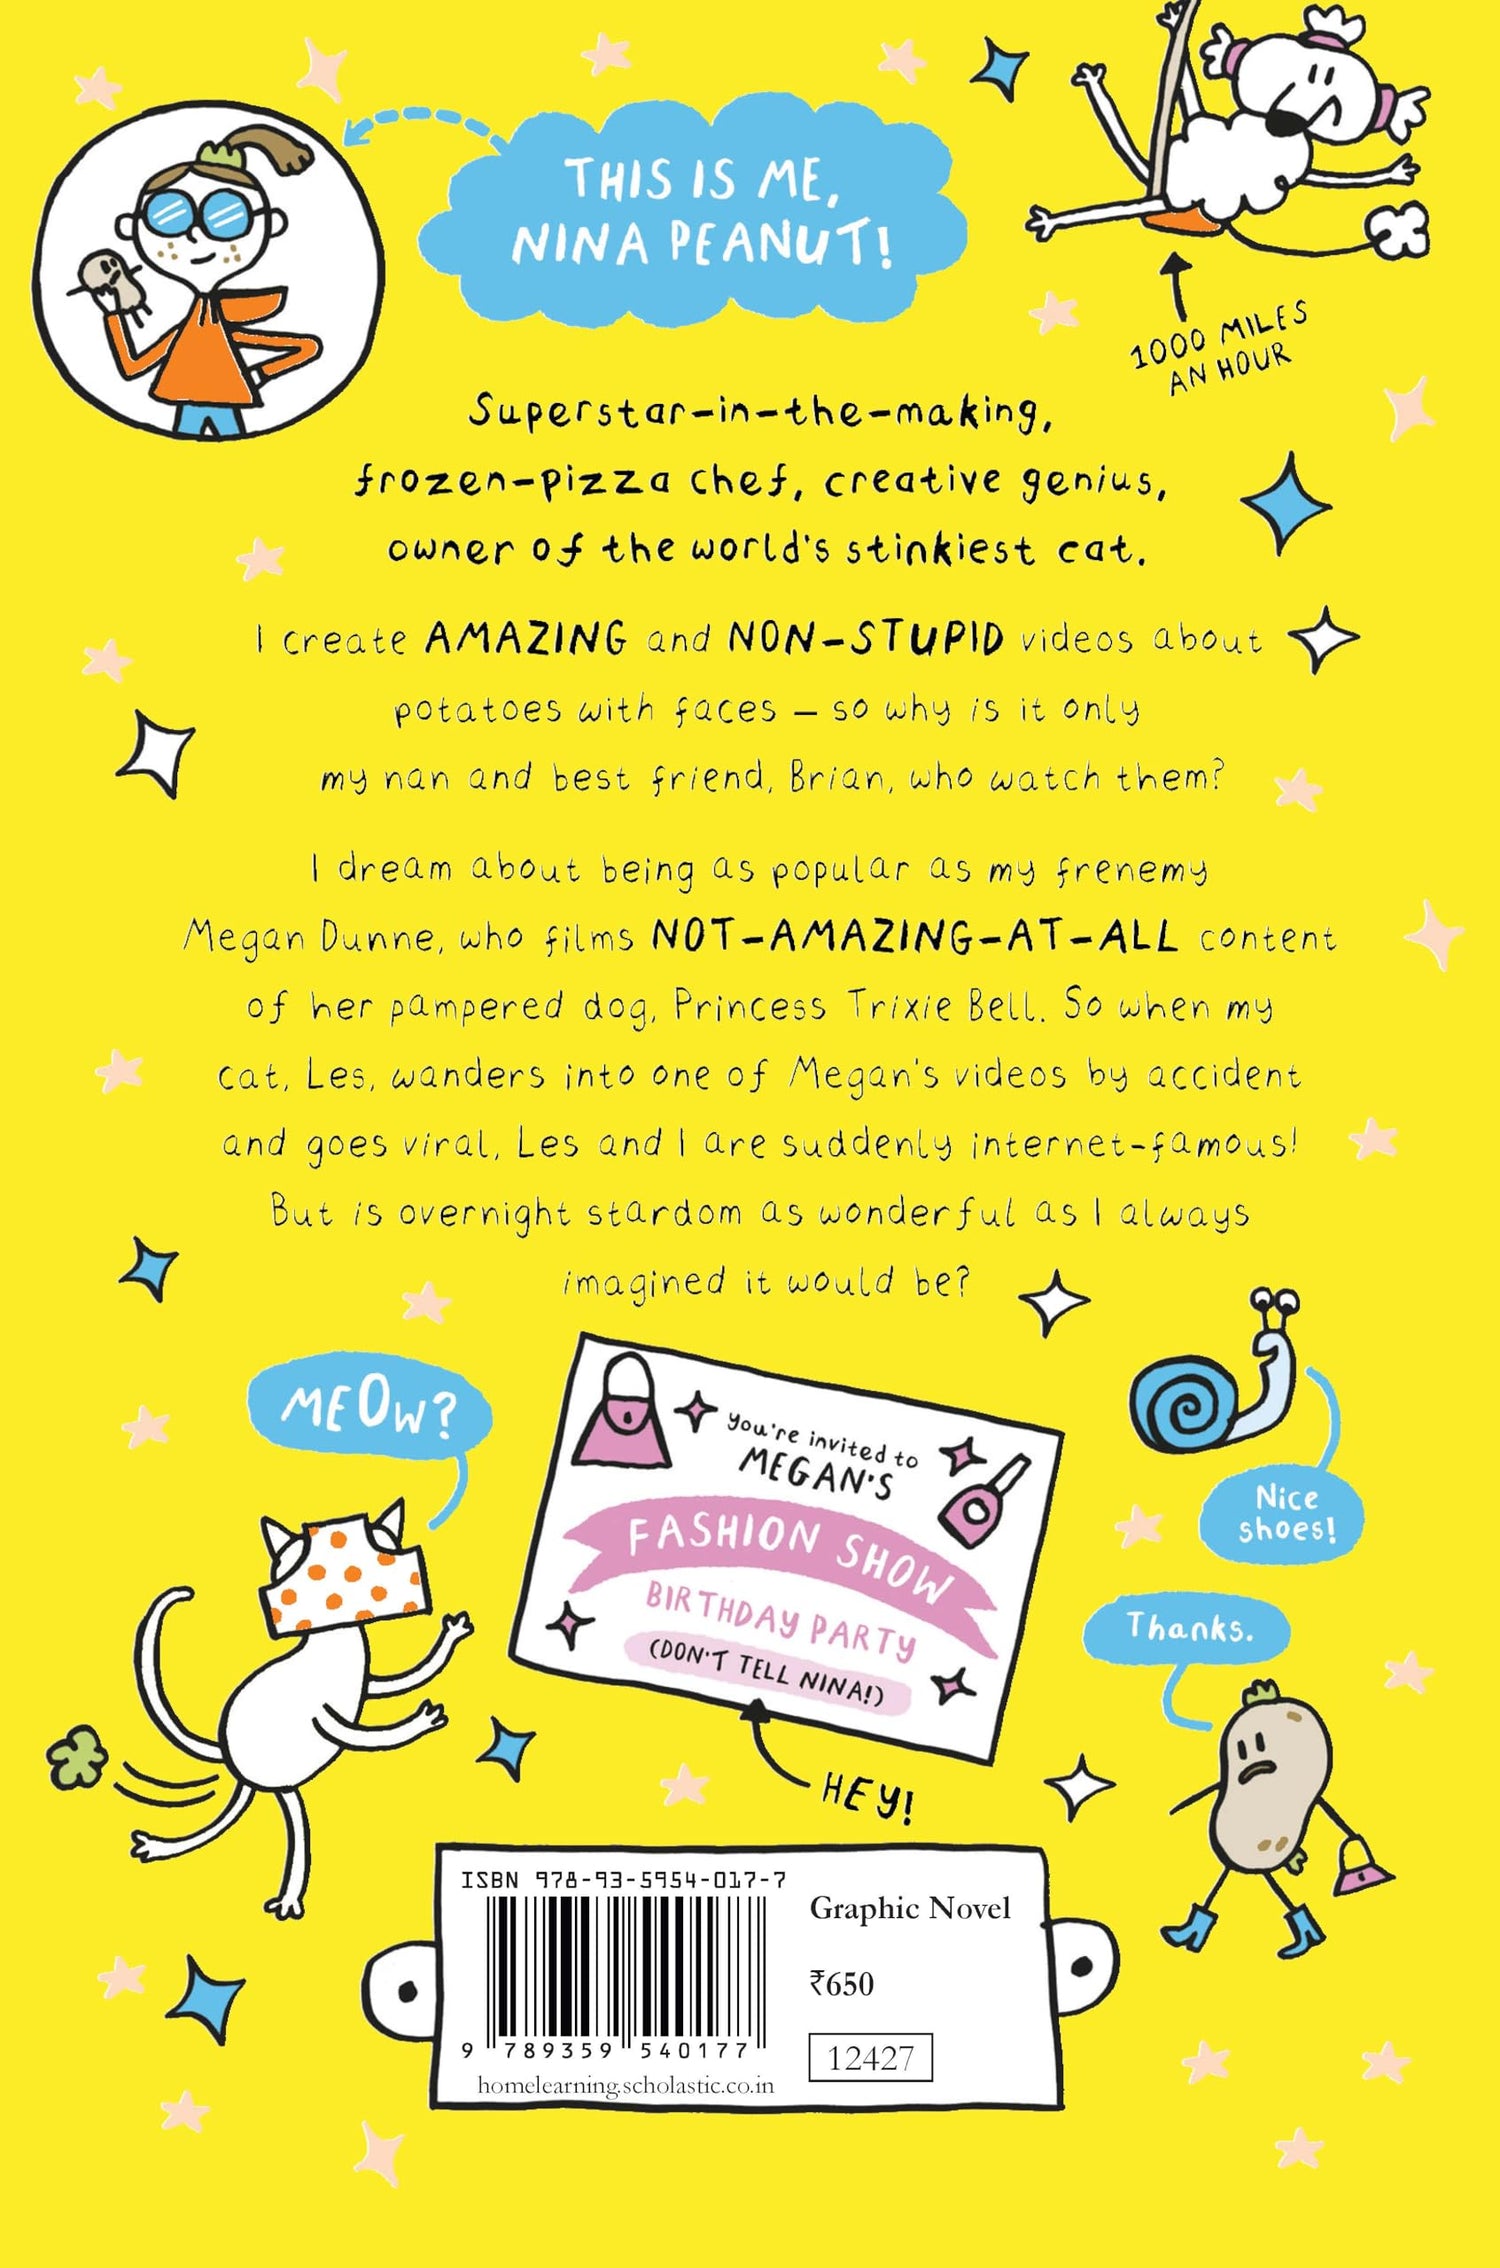 THIS IS ME,
NINA PEANUT!
1000 MILES
AN HOUR
Superstar-in-the-making,
frozen-pizza chef, creative genius,
owner of the world's stinkiest cat.
I create AMAZING and NON-STUPID videos about
potatoes with faces – so why is it only
my nan and best friend, Brian, who watch them?
I dream about being as popular as my frenemy
Megan Dunne, who films NOT-AMAZING-AT-ALL content
of her pampered dog, Princess Trixie Bell. So when my
cat, Les, wanders into one of Megan's videos by accident
and goes viral, Les and I are suddenly internet-famous!
But is overnight stardom as wonderful as I always
imagined it would be?
MEOW?
you're invited to
MEGAN'S
FASHION SHOW
BIRTHDAY PARTY
(DON'T TELL NINA!)
HEY!
Nice
shoes!
Thanks.
ISBN 978-93-5954-017-7
9 789359 540177
homelearning.scholastic.co.in
Graphic Novel
₹650
12427